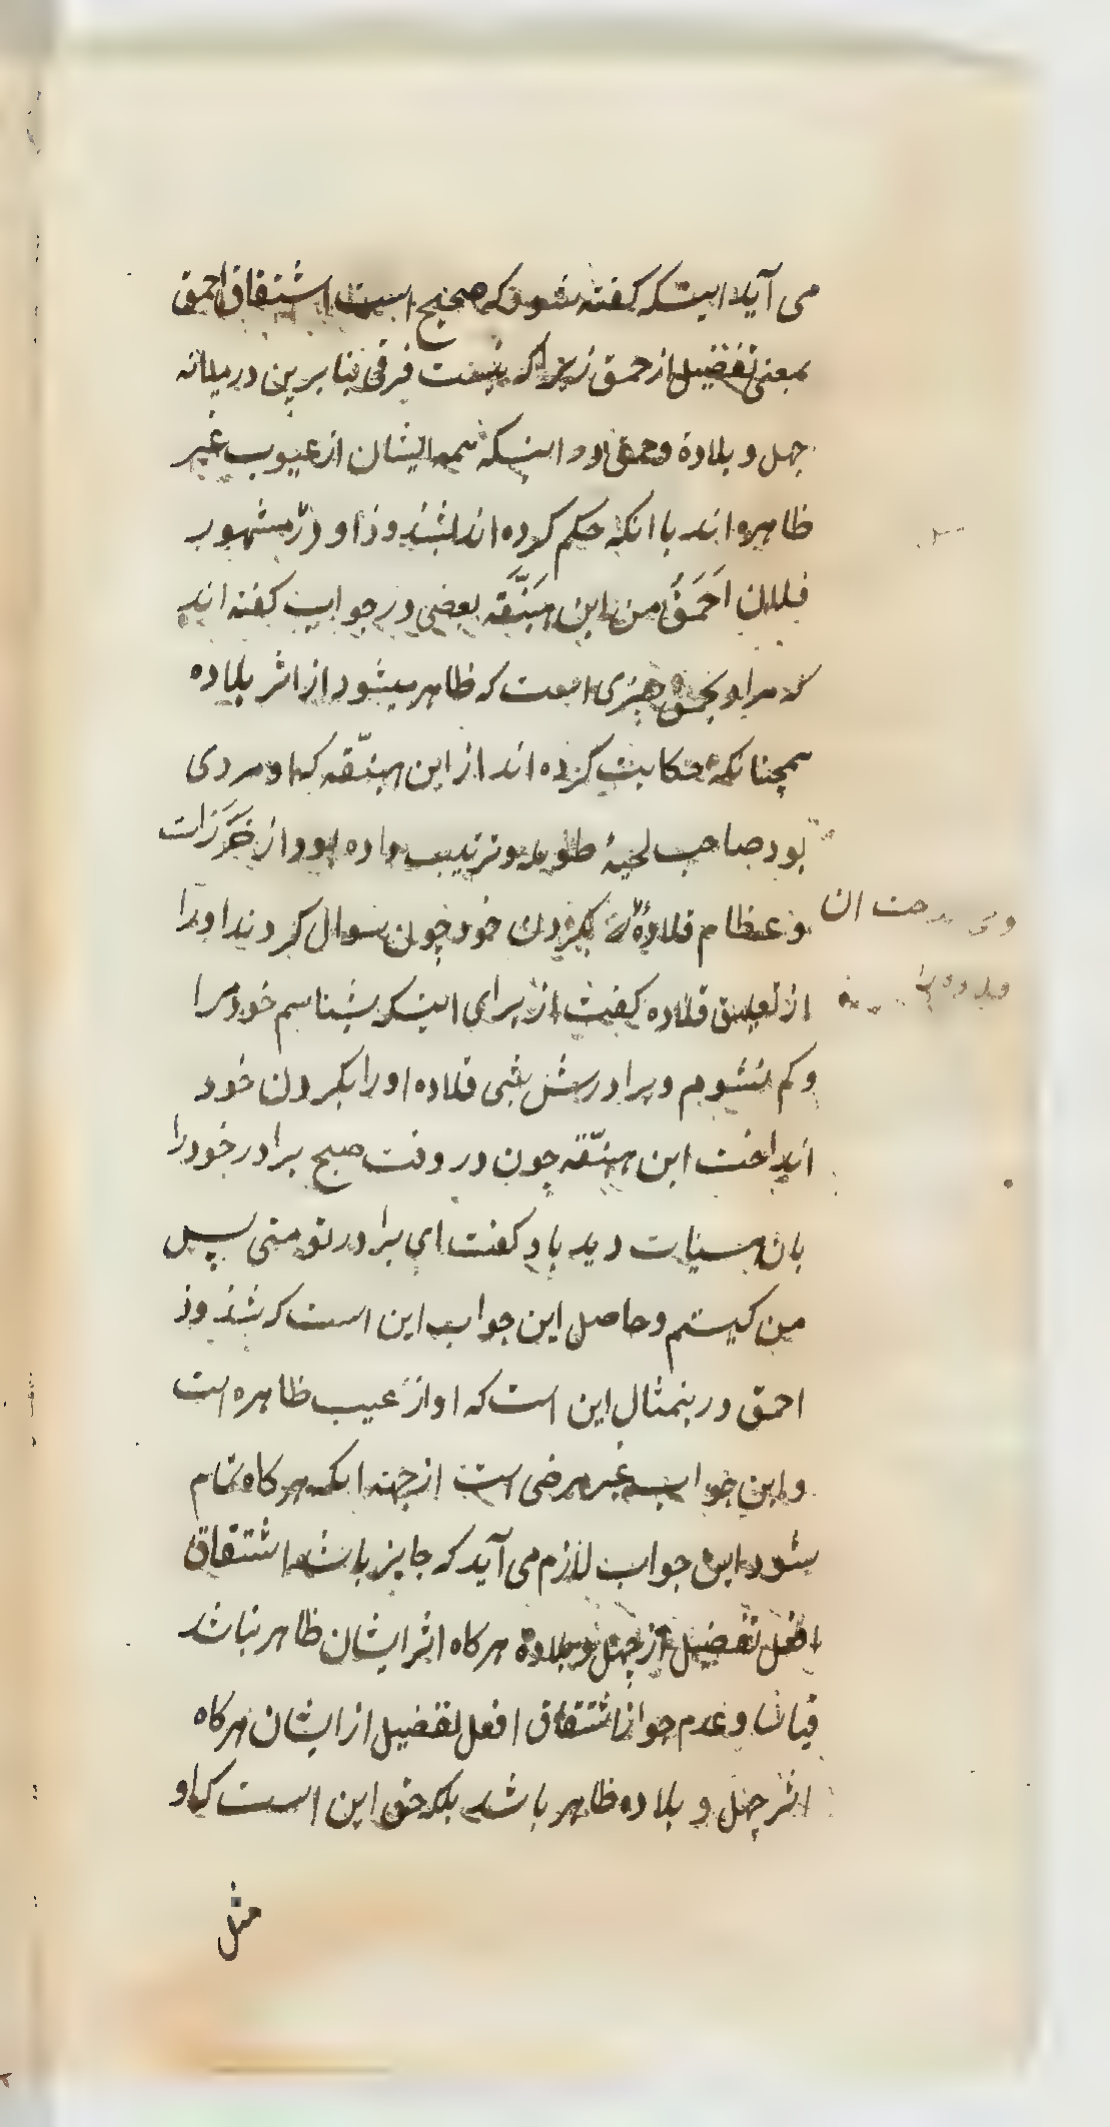 می آید اینست که کفته شود که صحیح است اشتقاق احمق
بمعنی تفضیل از حمق زیرا که نیست فرقی بنابرین در میانه
جهل و بلادة و حمق در اینکه همه ایشان از عیوب غیر
ظاهره اند با آنکه حکم کرده اند بشذوذ او در مشهور
فلان اَحمَقُ من ابن هَبَنَّقَه بعضی در جواب کفته اند
که مراد بحمق چیزی است که ظاهر میشود از اثر بلاده
همچنانکه حکایت کرده اند از ابن هبنّقه که او مردی
بود صاحب لحیهٔ طویل و ترتیب داده بود از خَرَزات
و عظام قلادهٔ بکردن خود چون سوال کردند او را
از تعلیق قلاده کفت از برای اینکه بشناسم خود را
و کم نشوم و برادرش شبی قلاده او را بکردن خود
انداخت ابن هبنّقه چون در وقت صبح برادر خود را
بان هیئات دید باو کفت ای برادر تو منی پس
من کیستم و حاصل این جواب این است که شذوذ
احمق در ینمثال این است که او از عیب ظاهره است
و این جواب غیر مرضی است از جهة اینکه هر کاه تمام
شود این جواب لازم می آید که جایز باشد اشتقاق
افعل تفضیل از جهل و بلادة هر کاه اثر ایشان ظاهر نباشد
قیاسا و عدم جواز اشتقاق افعل تفضیل از ایشان هر کاه
اثر جهل و بلاده ظاهر باشد بلکه حق این است که او
مثل